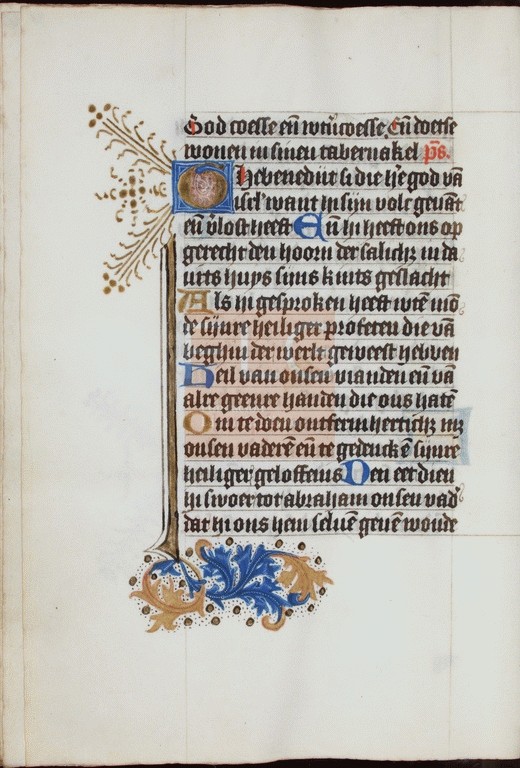 God woesse en̄ wtūwesse. En̄ woerse
wonen in sinen tabernakel ps̄.
Ghebenedijt si die h̄e god vā
israel want hi sijn volc geuāt
en̄ v̄lost heeft En̄ hi heeft ons op
gerecht den hoorn der salichz in da
uits huys sijns kints geslacht
Als hi gesproken heeft wtē mō
de sijnre heiliger profeten die vā
beghin der werlt geweest hebben
Heil van onsen vianden en̄ vā
alre geenre handen die ons hatē
Om te doen ontfermherticħz mz
onsen vaderē en̄ te gedenckē sijnre
heiliger geloftenis Den eet dien
hi swoer tot abraham onsen vad᷑
dat hi ons hem seluē geuē woude